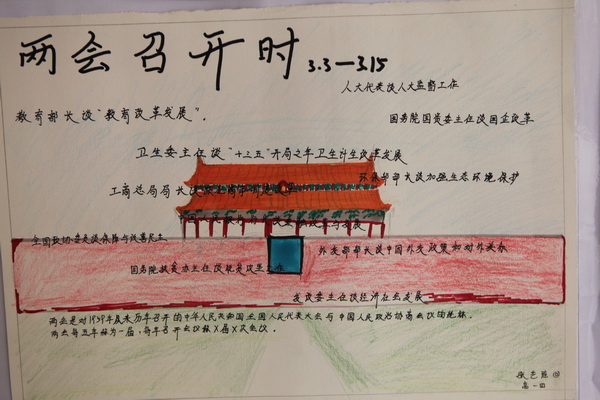 两会召开时
3.3—3.15
人大代表谈人大监督工作
教育部长谈“教育改革发展”.
国务院国资委主任谈国企改革
卫生委主任谈“十三五”开局之年卫生计生改革发展
环保部部长谈加强生态环境保护
工商总局局长谈
全国政协委员谈保障与改善民生
外交部部长谈中国外交政策和对外关系
国务院扶贫办主任谈脱贫攻坚工作
发改委主任谈经济社会发展
两会是对1959年及来历年召开的中华人民共和国全国人民代表大会与中国人民政治协商会议的统称.
两会每五年称为一届,每年召开会议称X届X次会议.
高一四